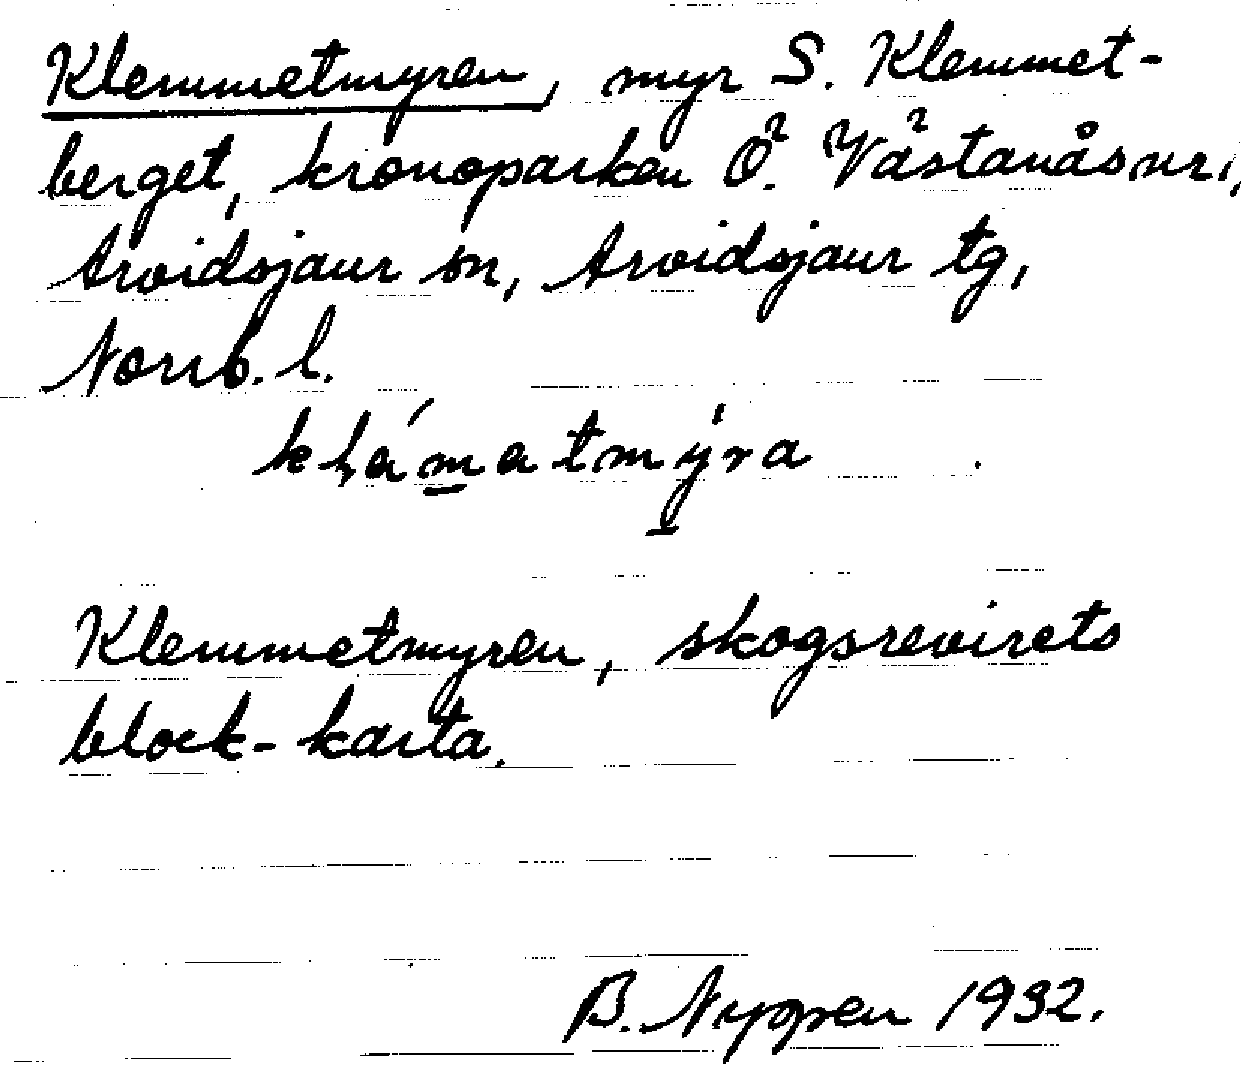 Klemmetmyren, myr S. Klemmet-
berget, kronoparken Ö. Västanåsnr 1,
Arvidsjaur sn, Arvidsjaur tg,
Norrb. l.
klámatmýra
Klemmetmyren, skogsrevirets
block-karta.
B. Nygren 1932.